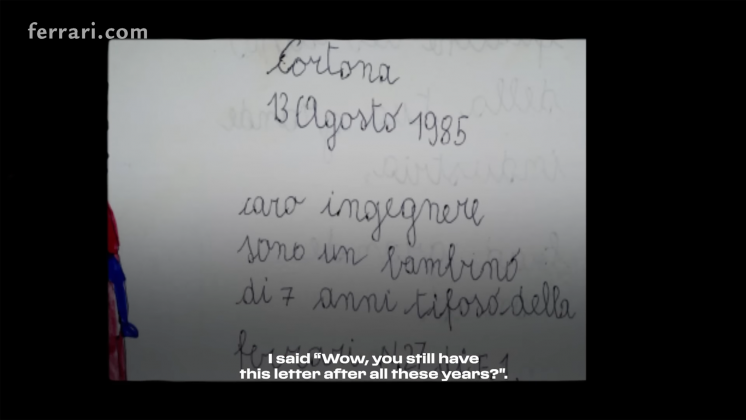 ferrari.com
Cortona
13 Agosto 1985
caro ingegnere
sono un bambino
di 7 anni tifoso della
ferrari n 27
I said “Wow, you still have
this letter after all these years?".